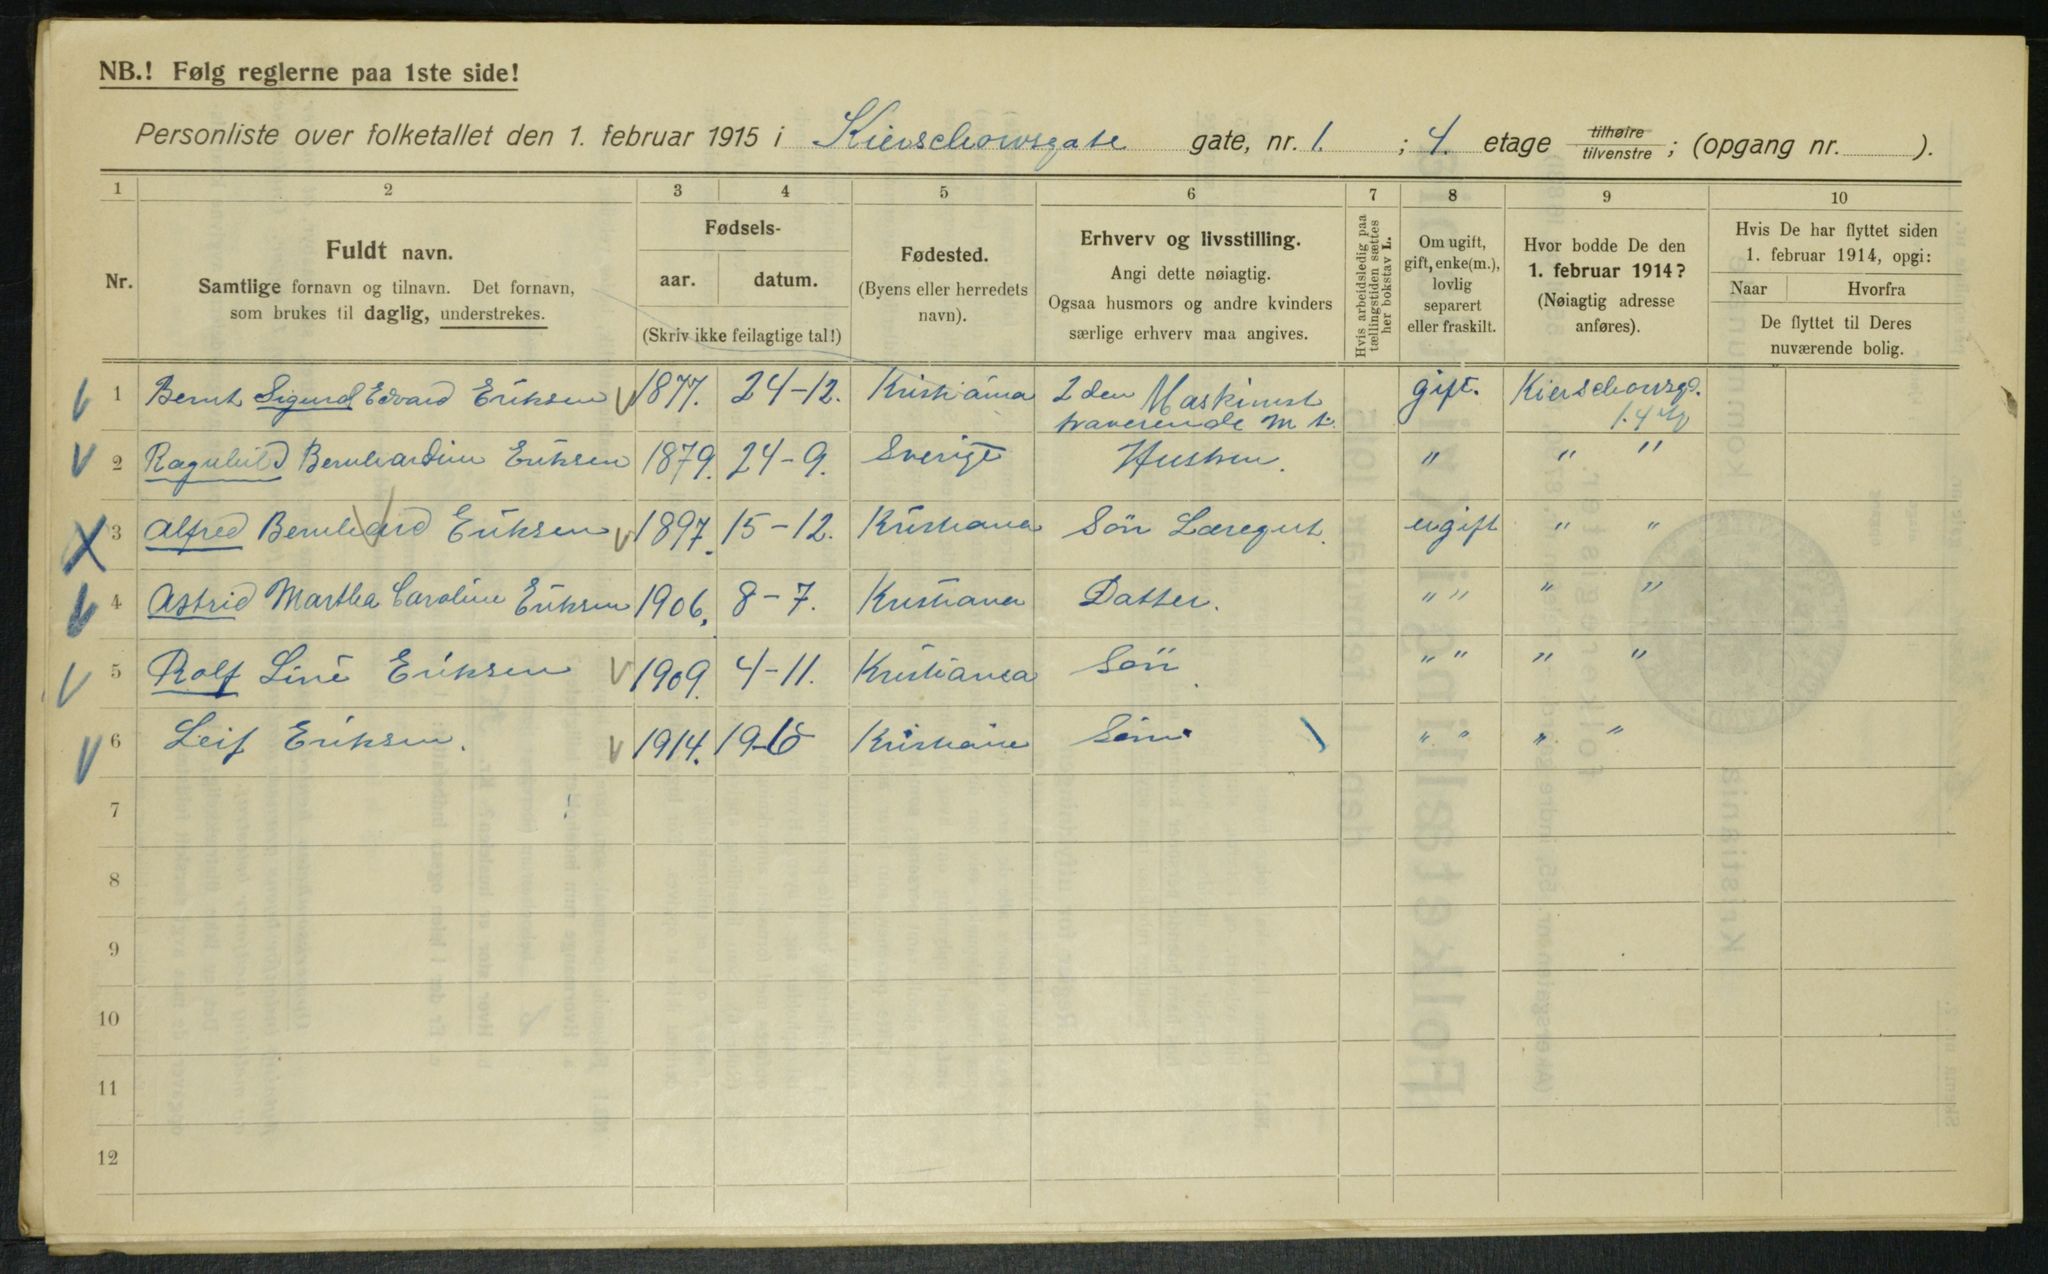 NB.! Følg reglerne paa 1ste side!
Personliste over folketallet den 1. februar 1915 i Kierschowsgate gate, nr. 1. ; 4. etage tilhøire tilvenstre ; (opgang nr. ).
1 2 3 4 5 6 7 8 9 10
Nr.
Fuldt navn.
Samtlige fornavn og tilnavn. Det fornavn,
som brukes til daglig, understrekes.
Fødsels-
aar. datum.
(Skriv ikke feilagtige tal!)
Fødested.
(Byens eller herredets
navn).
Erhverv og livsstilling.
Angi dette nøiagtig.
Ogsaa husmors og andre kvinders
særlige erhverv maa angives.
Hvis arbeidsledig paa
tællingstiden sættes
her bokstav L.
Om ugift,
gift, enke(m.),
lovlig
separert
eller fraskilt.
Hvor bodde De den
1. februar 1914?
(Nøiagtig adresse
anføres).
Hvis De har flyttet siden
1. februar 1914, opgi:
Naar Hvorfra
De flyttet til Deres
nuværende bolig.
1 Bernt Sigurd Edvard Eriksen 1877. 24-12. Kristiania 2den Maskinist gift. Kierschowsgd.
1.4
2 Ragnhild Bernhardine Eriksen 1879. 24-9. Sverige Hustru. " " "
3 Alfred Bernhard Eriksen 1897. 15-12. Kristiania Sön Læregut. ugift " "
4 Astrid Martha Caroline Eriksen 1906. 8-7. Kristiania Datter. " " " "
5 Rolf Eriksen 1909. 4-11. Kristiania Sön " " " "
6 Leif Eriksen. 1914. Kristiania Sön " " " "
7
8
9
10
11
12